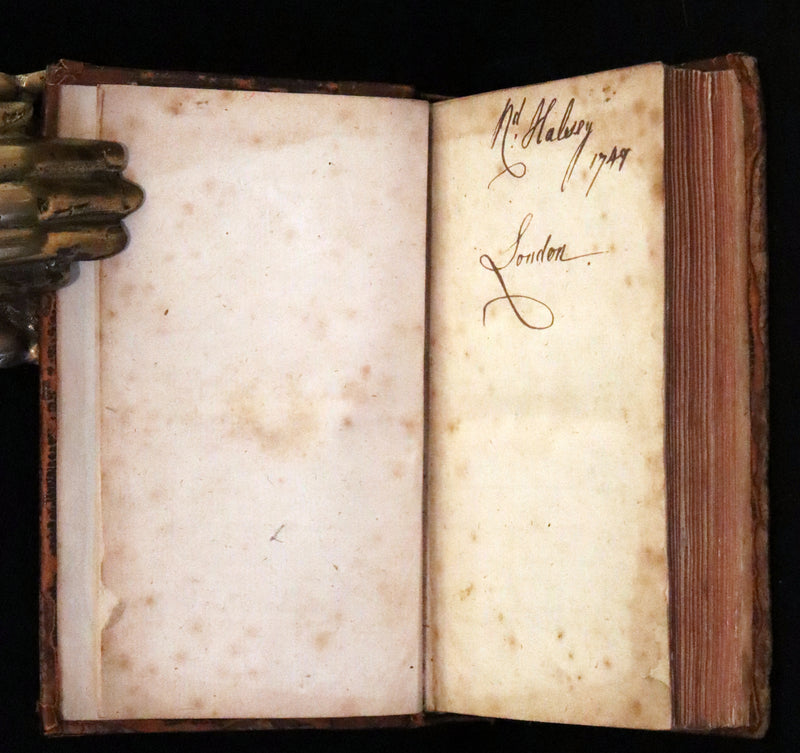 Nd. Halsey
1747
London.